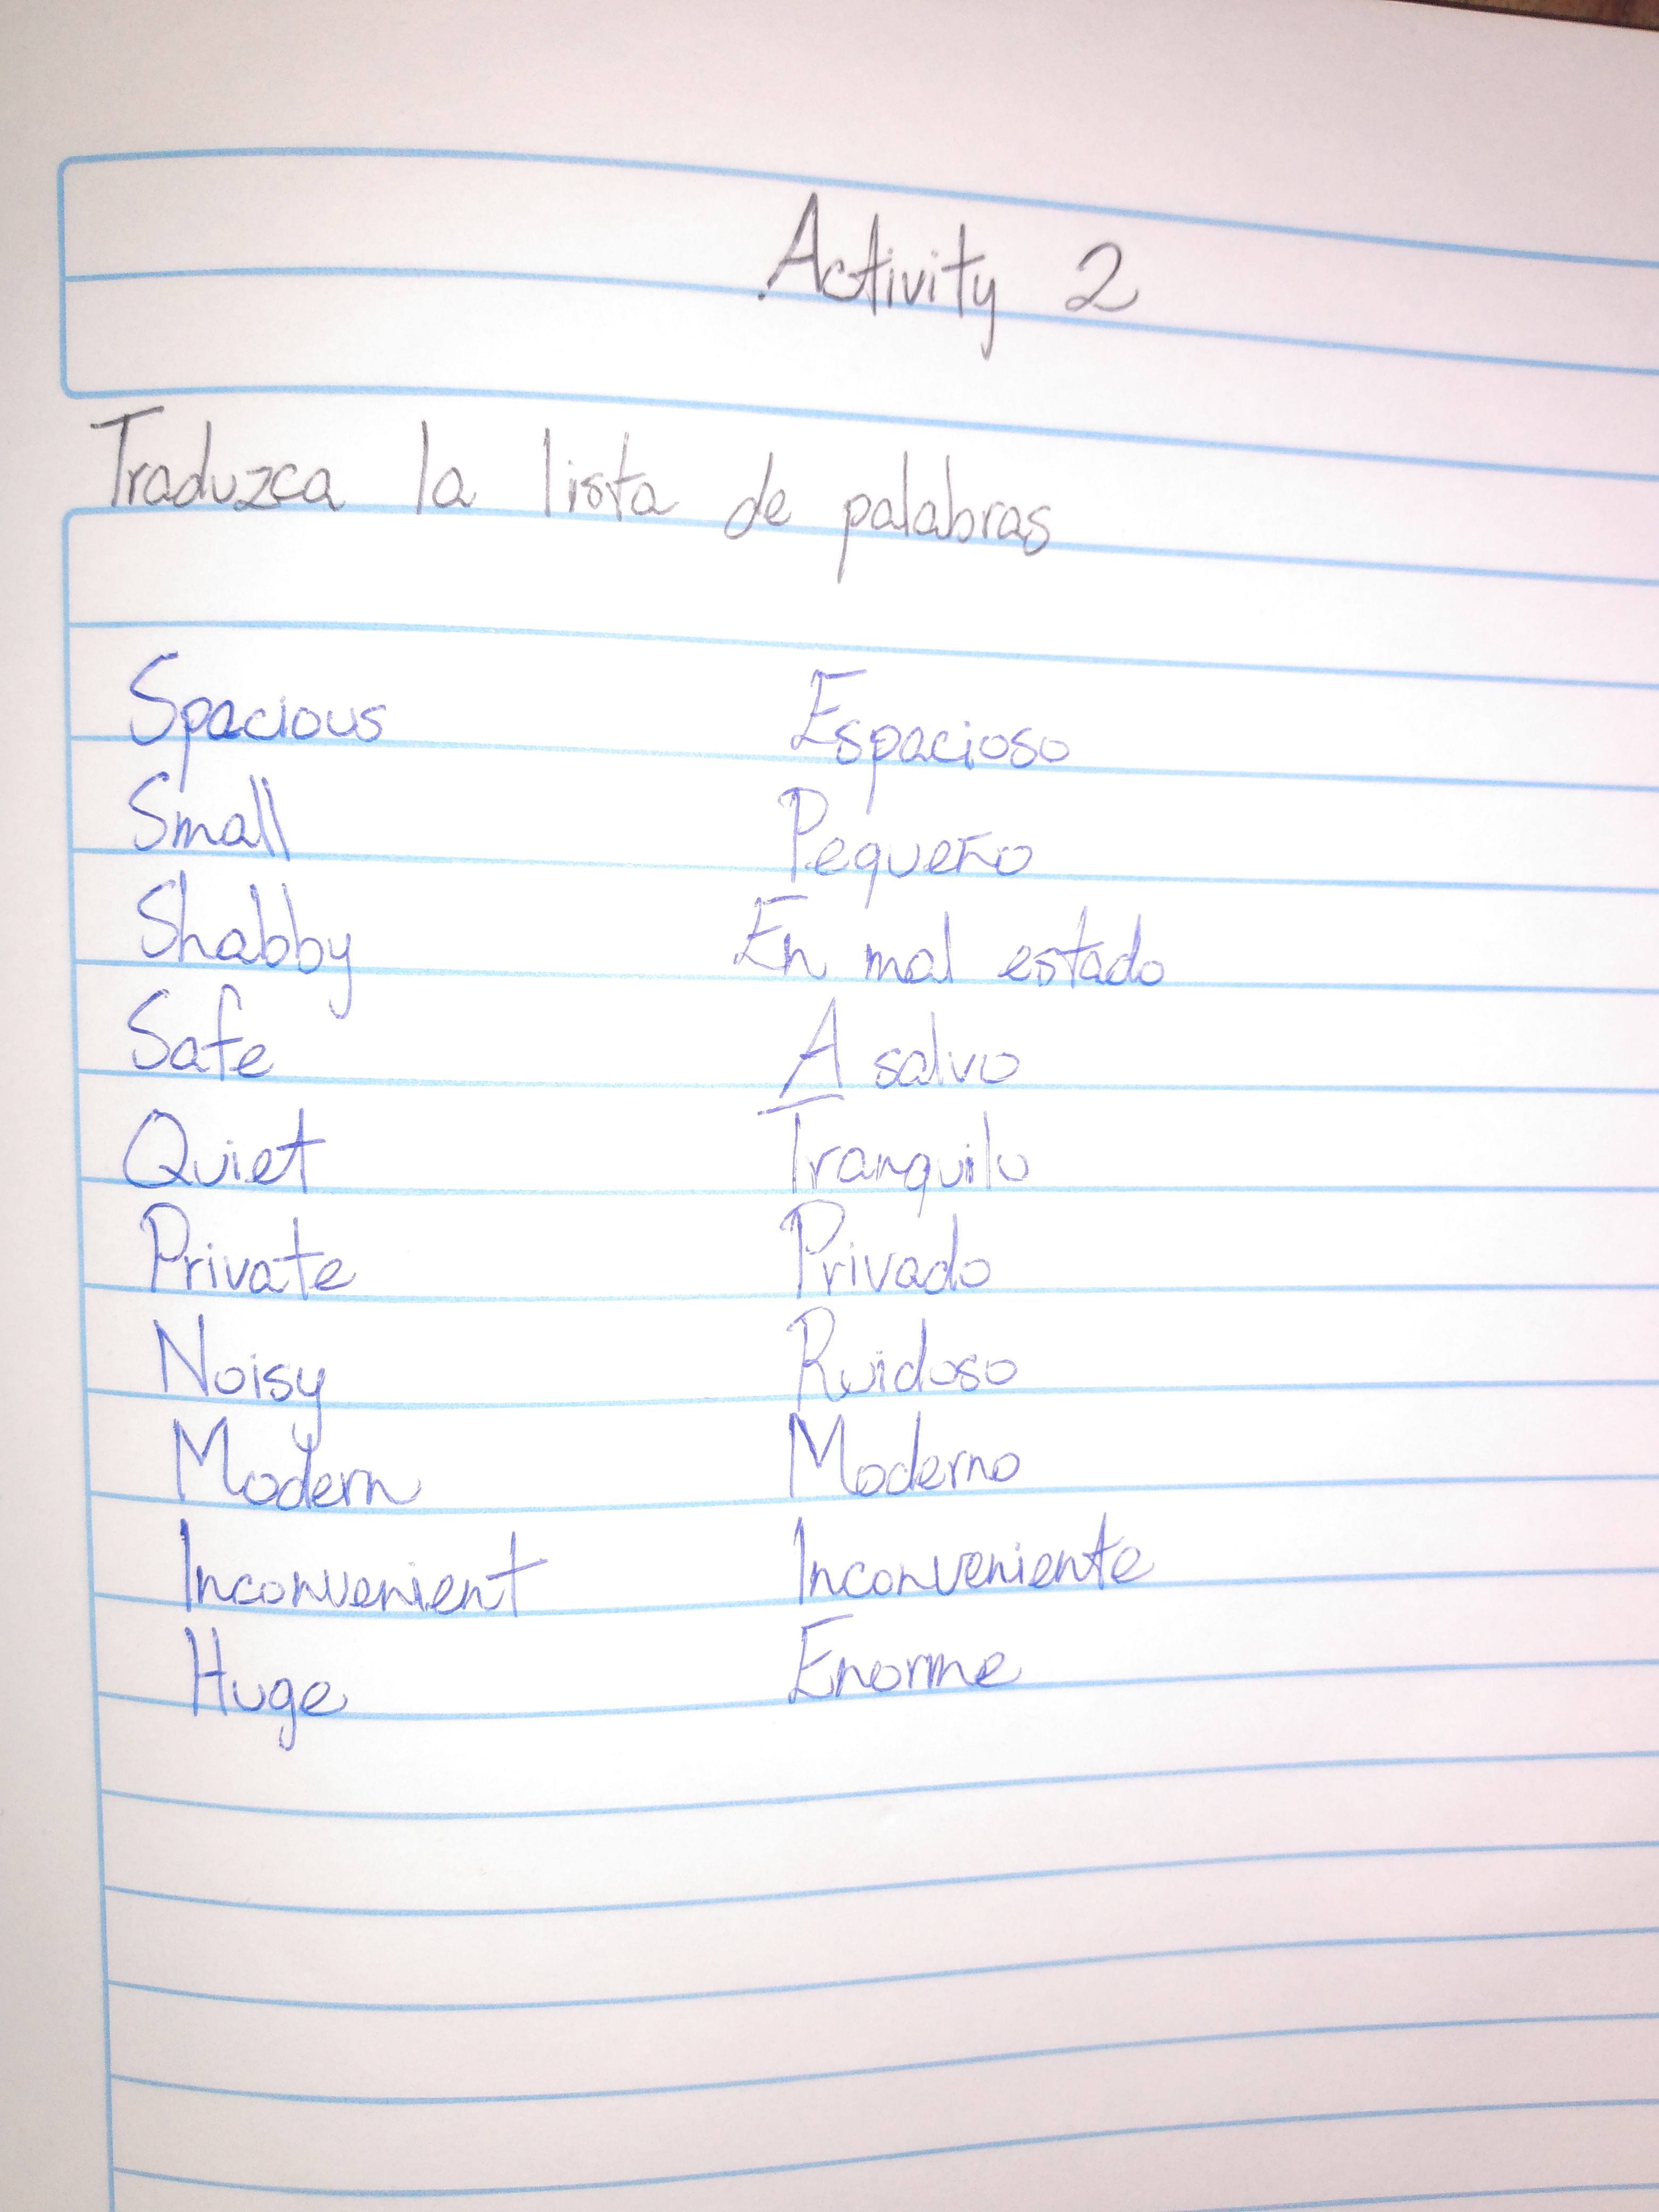 Activity 2
Traduzca la lista de palabras
Spacious Espacioso
Small Pequeño
Shabby En mal estado
Safe A salvo
Quiet Tranquilo
Private Privado
Noisy Ruidoso
Modern Moderno
Inconvenient Inconveniente
Huge Enorme